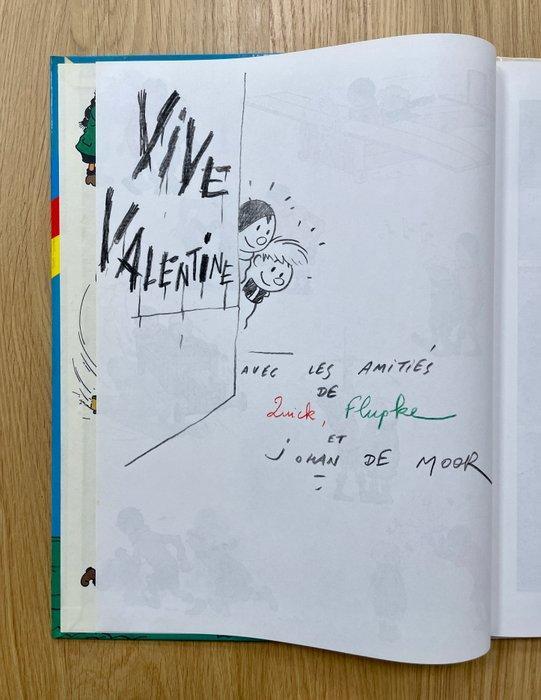 ViVE
VALENTiNE
AVEC LES AMiTiÉS
DE
Quick, Flupke
ET
jOHAN DE MOOR